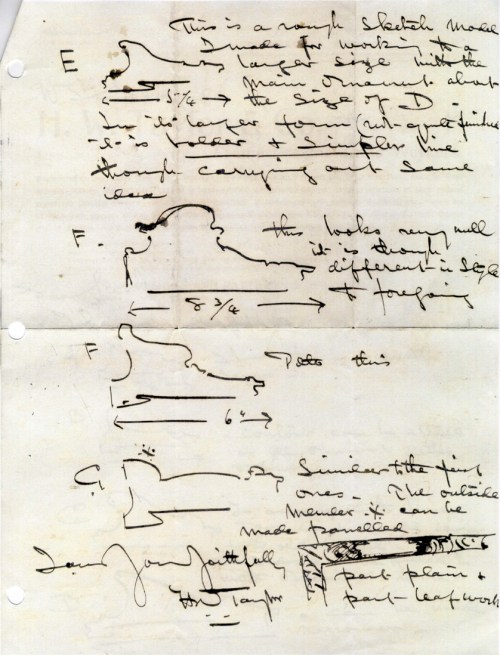 This is a rough Sketch model
E I made for working to a
larger size with the
main ornament about
5 1/4 → the size of D -
In its larger form (not quite finished
it is bolder & Simpler line
though carrying out same
idea
F. this looks very well
it is though
different in style
to foregoing
8 3/4
F Ditto this
6"
G Similar to the first
ones - The outside
Member ⁜ can be
made panelled
I am Yours faithfully
Taylor
part plain &
part leaf work